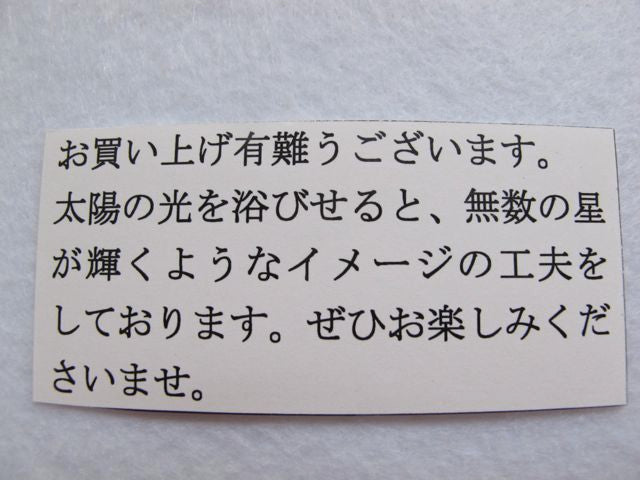 お買い上げ有難うございます。
太陽の光を浴びせると、無数の星
が輝くようなイメージの工夫を
しております。ぜひお楽しみくだ
さいませ。